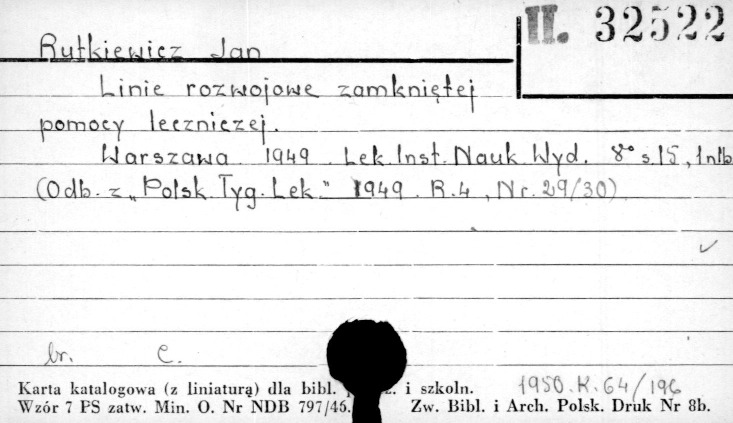 II. 32522
Rutkiewicz Jan
Linie rozwojowe zamkniętej
pomocy leczniczej.
Warszawa 1949. Lek. Inst. Nauk. Wyd. 8° s. 15, 1 nlb
(Odb. z „Polsk. Tyg. Lek." 1949. R. 4, Nr. 29/30)
br. C.
Karta katalogowa (z liniaturą) dla bibl. i szkoln. 1950. K. 64/196
Wzór 7 PS zatw. Min. O. Nr NDB 797/46. Zw. Bibl. i Arch. Polsk. Druk Nr 8b.